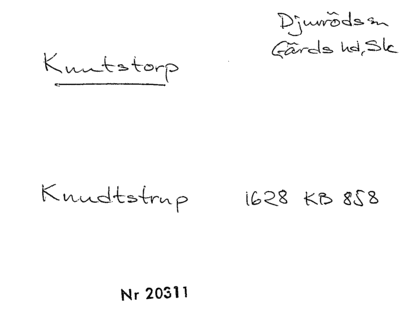 Djurröds sn
Gärds hd, Sk
Knutstorp
Knudtstrup 1628 KB 858
Nr 20311